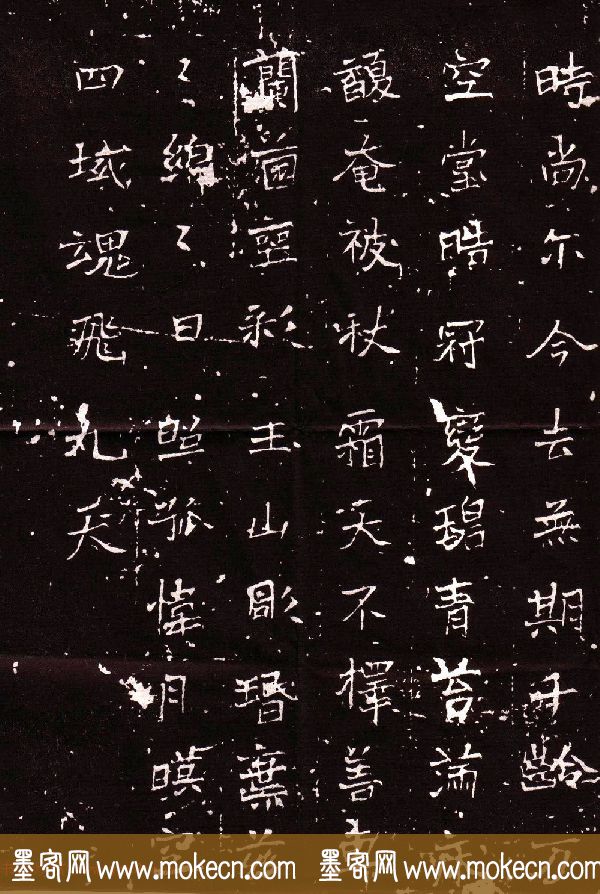 時尚尔今去無期千齡
空堂晧冠變碧青苔滿
馥奄被秋霜天不擇善
蘭崗 彩玉山彫瑉棄
〻綿〻日照孤幃月暎
四域魂飛九天
墨客网 www.mokecn.com 墨客网 www.mokecn.com